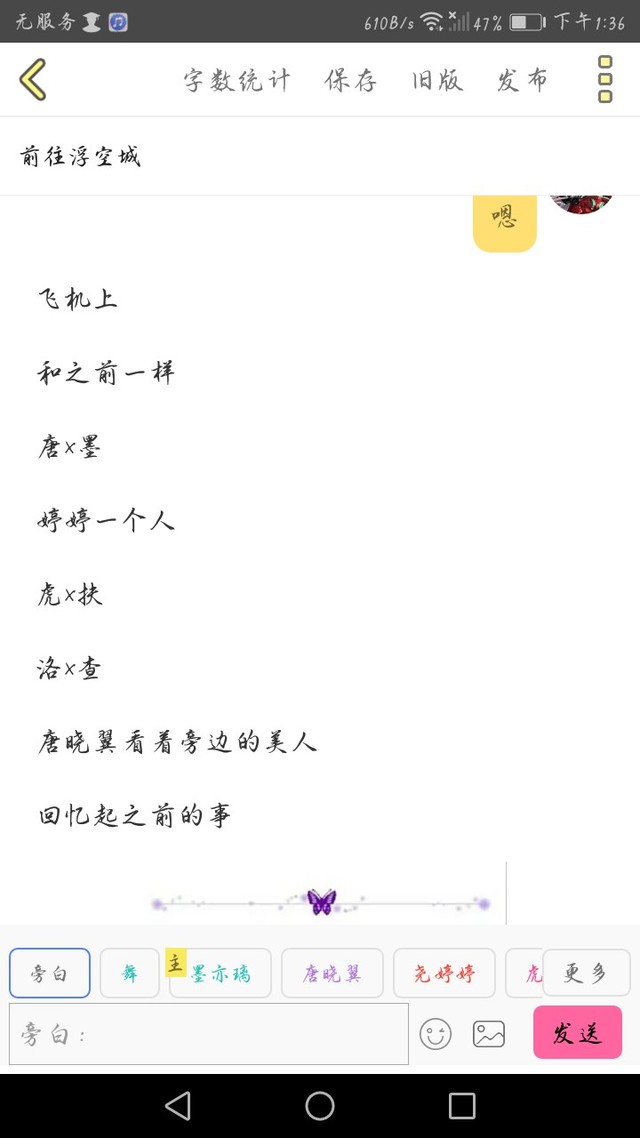 无服务 610B/s 47% 下午1:36
字数统计 保存 旧版 发布
前往浮空城
嗯
飞机上
和之前一样
唐x墨
婷婷一个人
虎x扶
洛x查
唐晓翼看着旁边的美人
回忆起之前的事
旁白 舞 主 墨亦璃 唐晓翼 尧婷婷 虎 更多
旁白： 发送